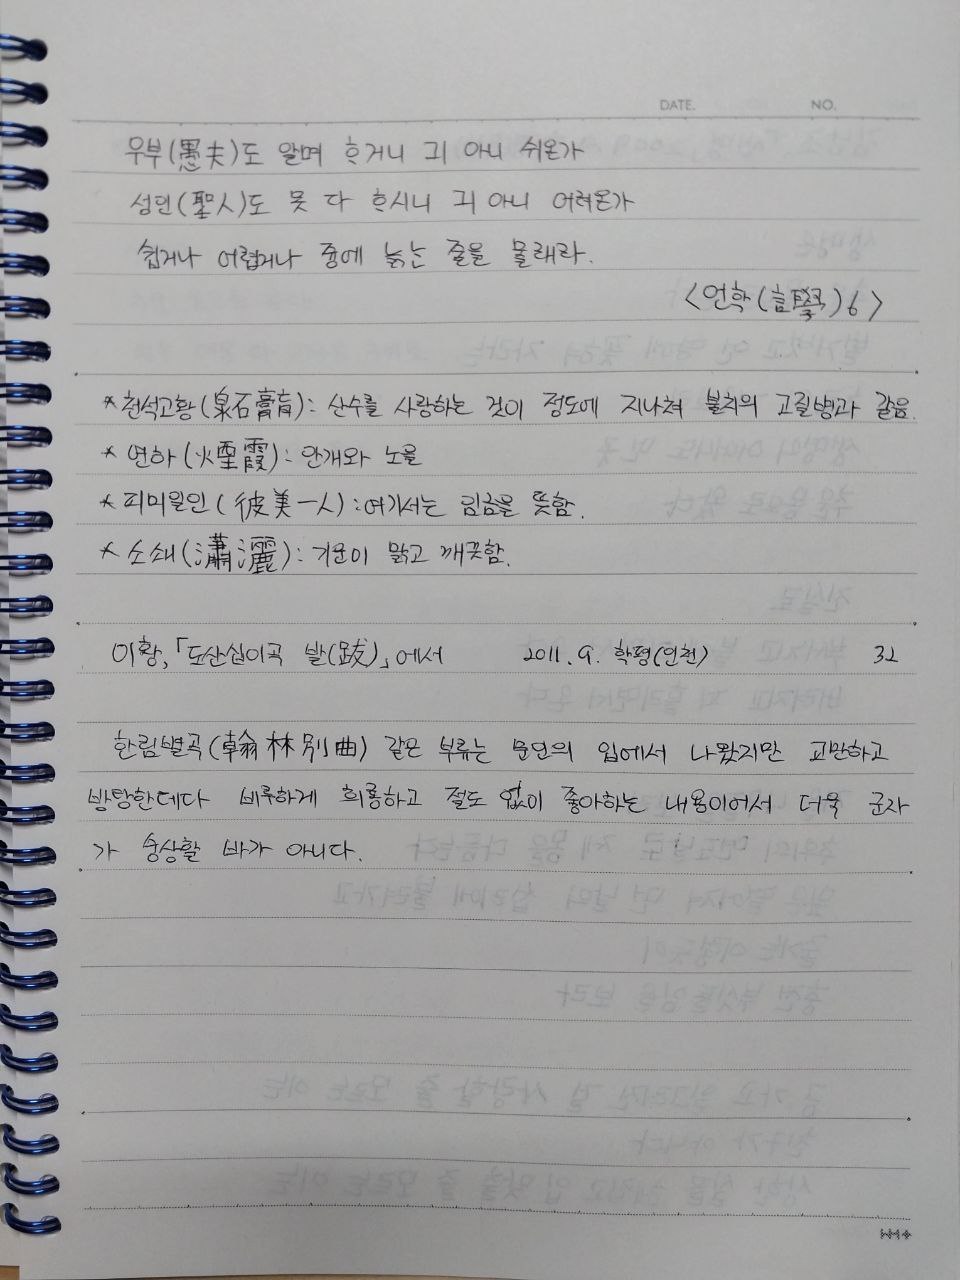 DATE. NO.
우부(愚夫)도 알며 ᄒᆞ거니 긔 아니 쉬온가
성인(聖人)도 못 다 ᄒᆞ시니 긔 아니 어려온가
쉽거나 어렵거나 중에 늙는 줄을 몰래라.
<언학(言學)6>
*천석고황(泉石膏肓): 산수를 사랑하는 것이 정도에 지나쳐 불치의 고질병과 같음.
* 연하(煙霞): 안개와 노을
* 피미일인(彼美一人): 여기서는 임금을 뜻함.
* 소쇄(瀟灑): 기운이 맑고 깨끗함.
이황,「도산십이곡 발(跋)」에서 2011. 9. 학평(인천) 32
한림별곡(翰林別曲) 같은 부류는 문인의 입에서 나왔지만 교만하고
방탕한데다 비루하게 희롱하고 절도 없이 좋아하는 내용이어서 더욱 군자
가 숭상할 바가 아니다.